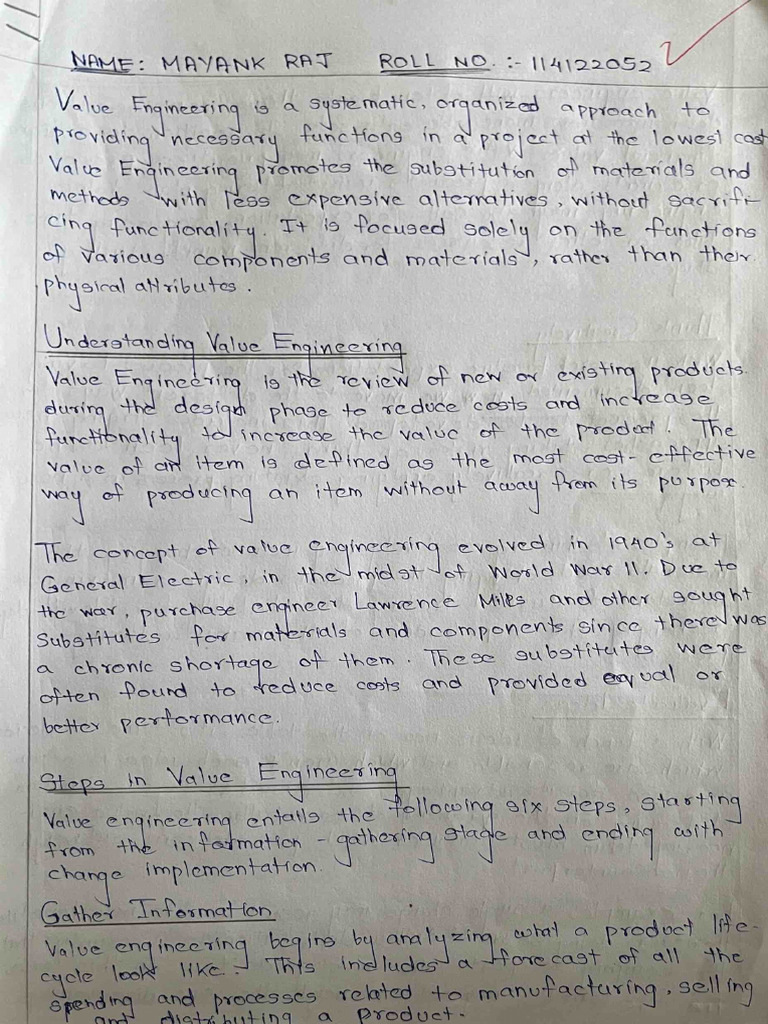 NAME: MAYANK RAJ ROLL NO. :- 114122052
Value Engineering is a systematic, organized approach to
providing necessary functions in a project at the lowest cost
Value Engineering promotes the substitution of materials and
methods with less expensive alternatives, without sacrifi-
cing functionality. It is focused solely on the functions
of various components and materials, rather than their
physical attributes.
Understanding Value Engineering
Value Engineering is the review of new or existing products
during the design phase to reduce costs and increase
functionality to increase the value of the product. The
value of an item is defined as the most cost-effective
way of producing an item without away from its purpose.
The concept of value engineering evolved in 1940's at
General Electric, in the midst of World War II. Due to
the war, purchase engineer Lawrence Miles and other sought
substitutes for materials and components since there was
a chronic shortage of them. These substitutes were
often found to reduce costs and provided equal or
better performance.
Steps in Value Engineering
Value engineering entails the following six steps, starting
from the information-gathering stage and ending with
change implementation.
Gather Information
Value engineering begins by analyzing what a product life-
cycle look like. This includes a forecast of all the
spending and processes related to manufacturing, selling
and distributing a product.